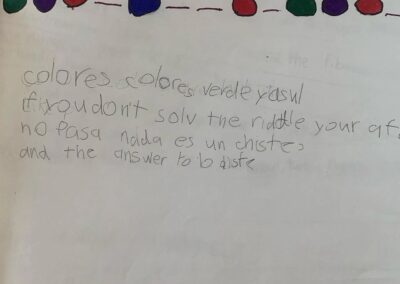 colores colores verde yasul
if you don't solv the riddle your
no Pasa nada es un chiste,
and the answer